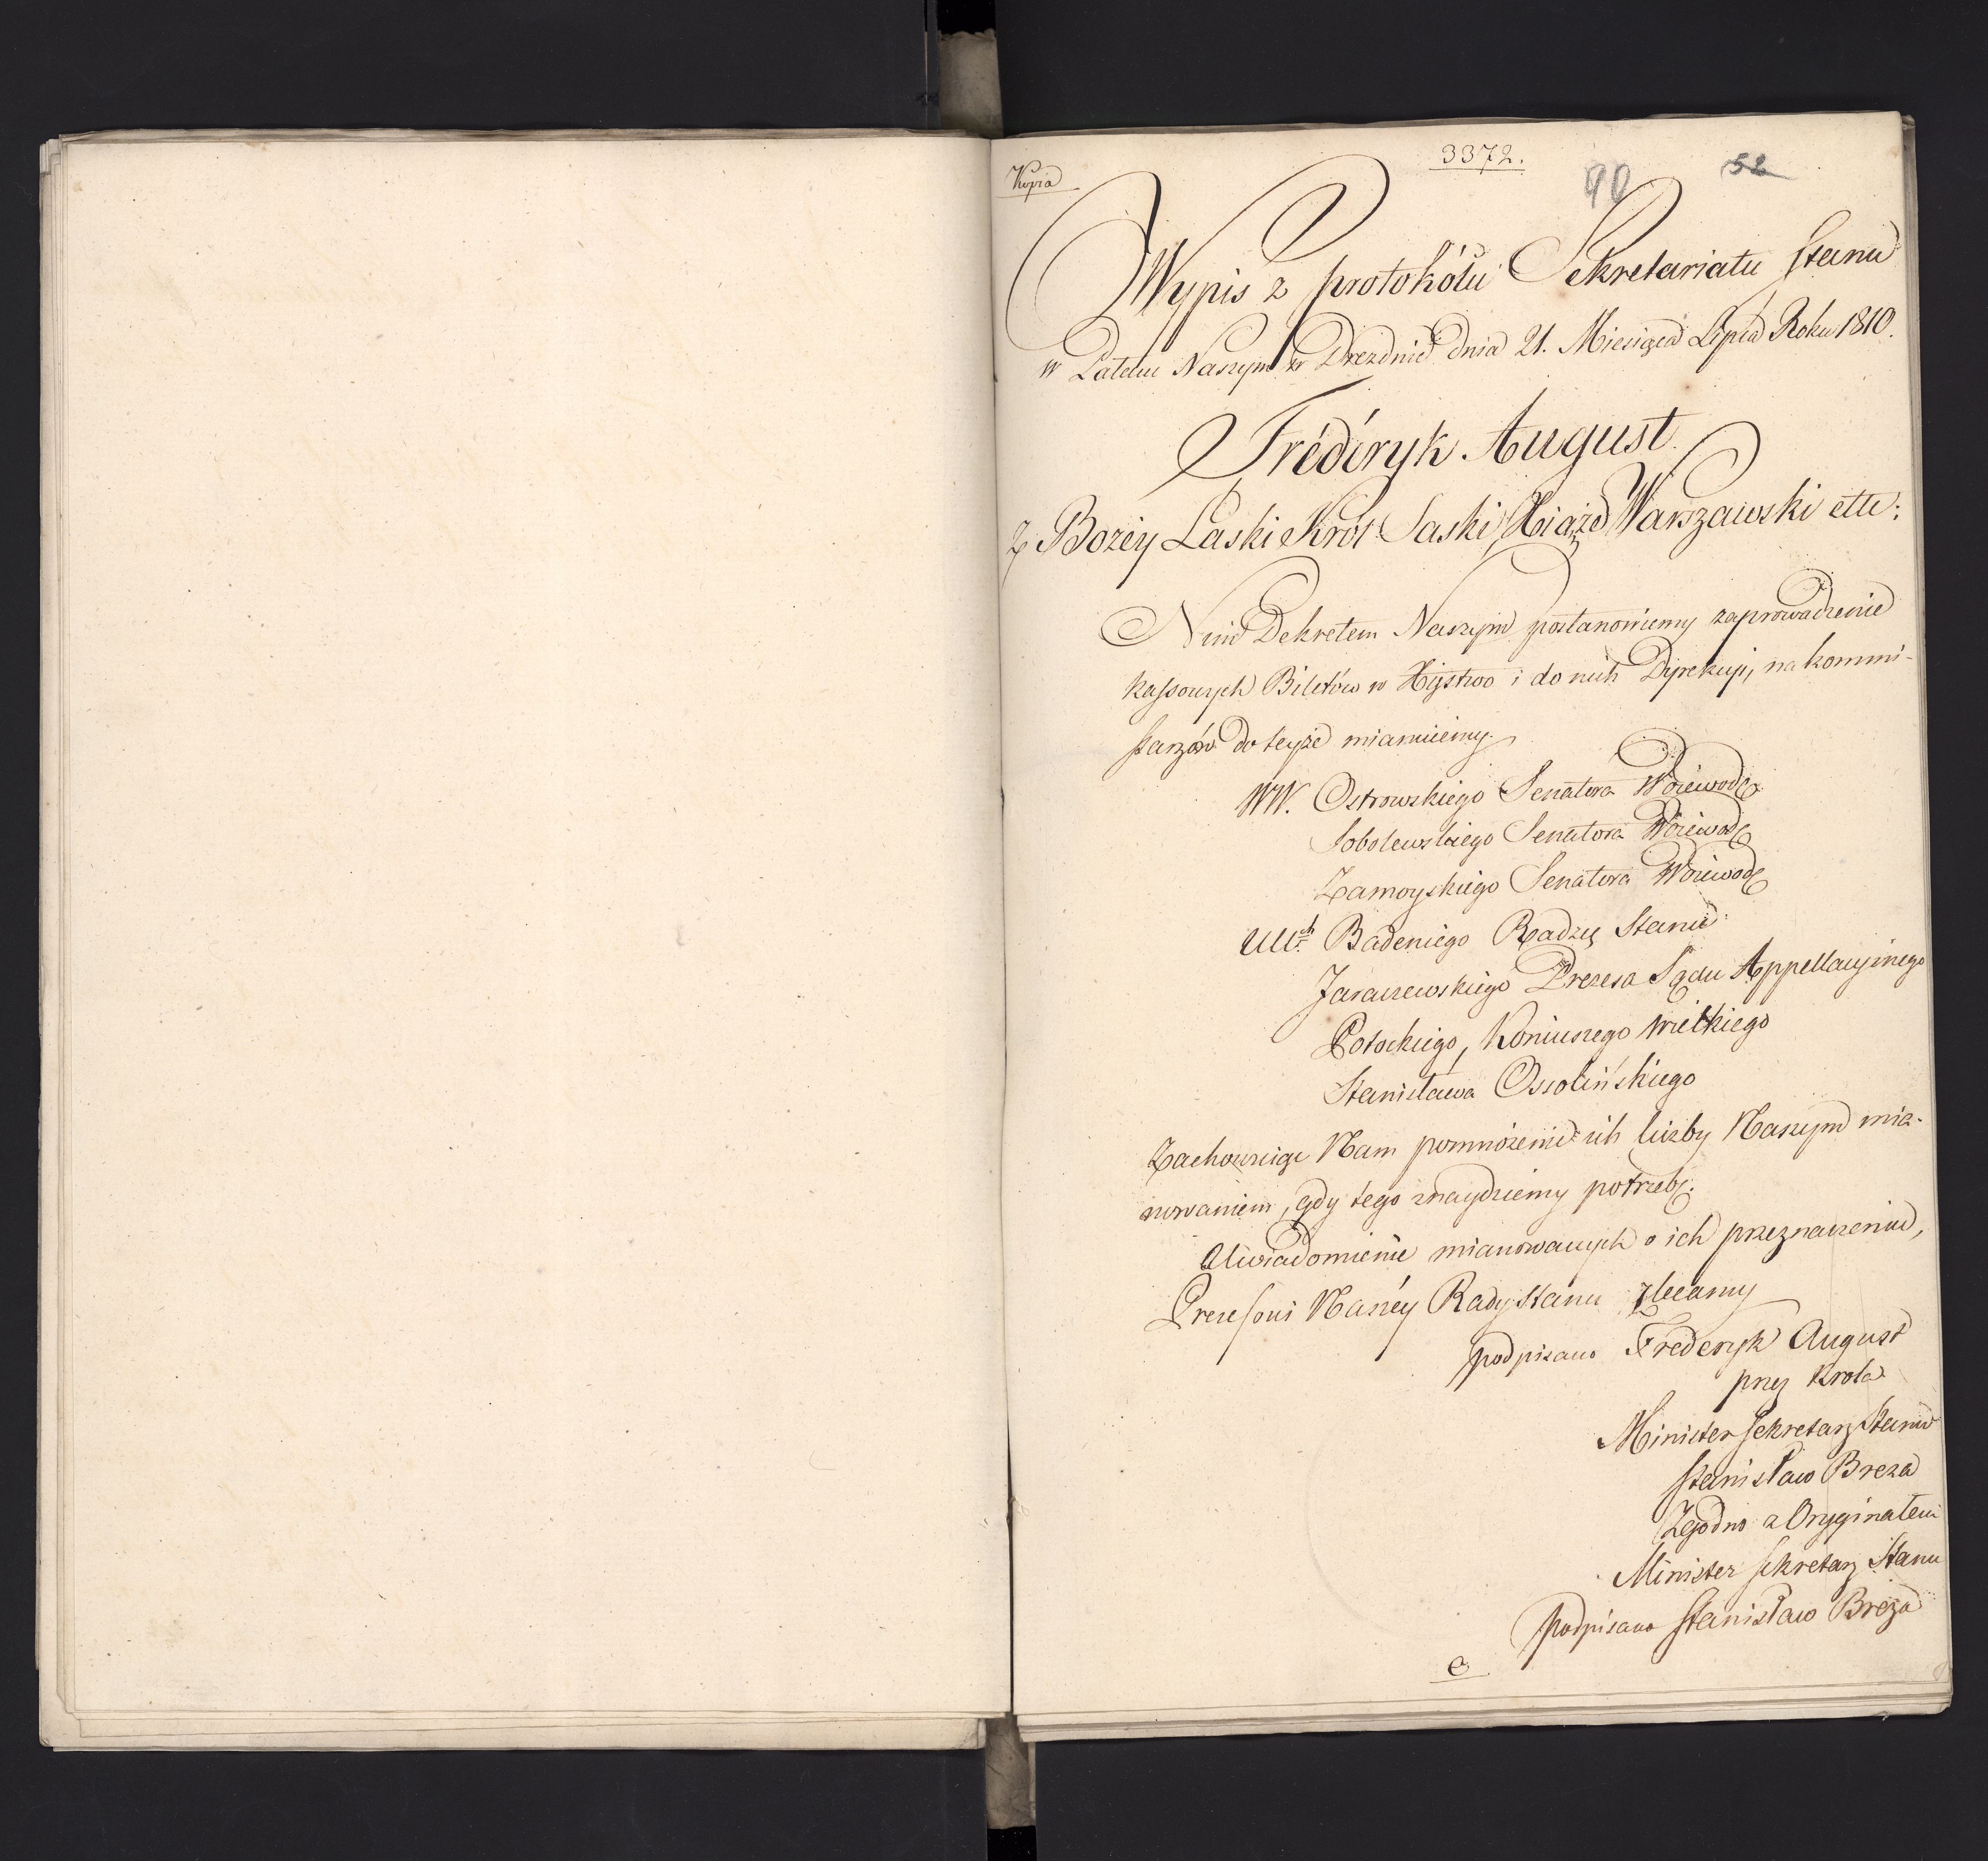 Kopia
3372.
90
52
Wypis z protokółu Sekretariatu Stanu
w Pałacu Naszym w Dreznie dnia 21. Miesiąca Lipca Roku 1810.
Fréderyk August
Z Bożéy Łaski Król Saski, Xiąże Warszawski ettc:
Ninie Dekretem Naszym postanowiemy zaprowadzenie
kassowych Biletów w Xięstwo i do nich Dyrekcyi, na kommi-
ssarzów do teyże mianuiemy.
WW. Ostrowskiego Senatora Woiewodę
Sobolewskiego Senatora Woiewodę
Zamoyskiego Senatora Woiewodę
UUch Badeniego Radzcę Stanu
Jaraczewskiego Prezesa Sądu Appellacyinego
Potockiego, Koniuszego Wielkiego
Stanisława Ossolińskiego
Zachowuiąc Nam pomnożenie ich liczby Naszym mia-
nowaniem, gdy tego znaydziemy potrzebę.
Uwiadomienie mianowanych o ich przeznaczeniu,
Prezesowi Naszéy Rady Stanu zlecamy
podpisano Frederyk August
przez Krola
Minister Sekretarz Stanu
Stanisław Breza
Zgodno z Oryginałem
Minister Sekretarz Stanu
podpisano Stanisław Breza